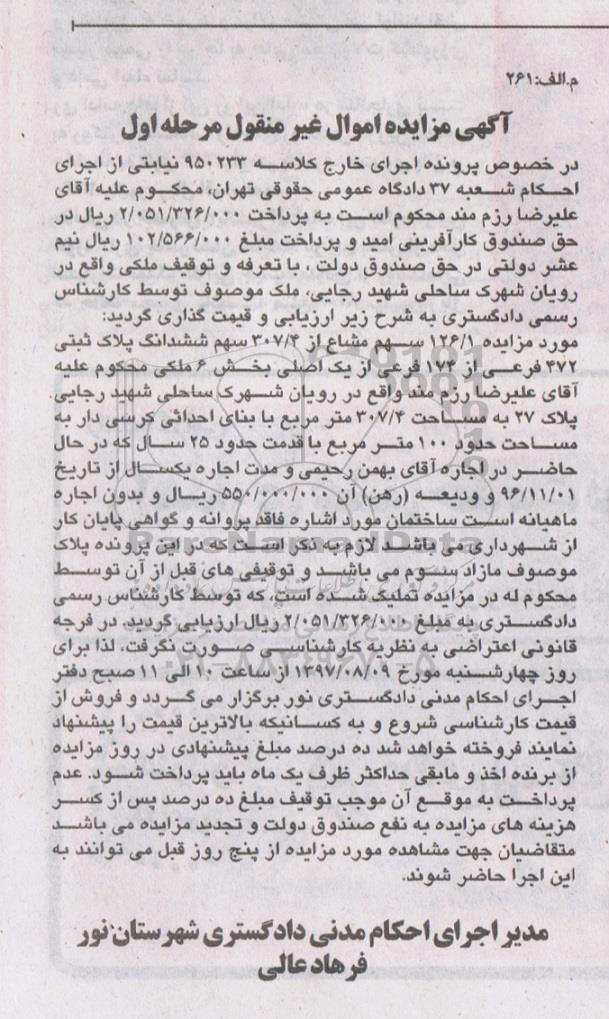 م.الف:۲۶۱
آگهی مزایده اموال غیر منقول مرحله اول
در خصوص پرونده اجرای خارج کلاسه ۹۵۰۲۳۳ نیابتی از اجرای
احکام شعبه ۳۷ دادگاه عمومی حقوقی تهران، محکوم علیه آقای
علیرضا رزم مند محکوم است به پرداخت ۲/۰۵۱/۳۲۶/۰۰۰ ریال در
حق صندوق کارآفرینی امید و پرداخت مبلغ ۱۰۲/۵۶۶/۰۰۰ ریال نیم
عشر دولتی در حق صندوق دولت . با تعرفه و توقیف ملکی واقع در
رویان شهرک ساحلی شهید رجایی، ملک موصوف توسط کارشناس
رسمی دادگستری به شرح زیر ارزیابی و قیمت گذاری گردید:
مورد مزایده ۱۲۶/۱ سهم مشاع از ۳۰۷/۴ سهم ششدانگ پلاک ثبتی
۴۷۲ فرعی از ۱۷۴ فرعی از یک اصلی بخش ۶ ملکی محکوم علیه
آقای علیرضا رزم مند واقع در رویان شهرک ساحلی شهید رجایی
پلاک ۲۷ به مساحت ۳۰۷/۴ متر مربع با بنای احداثی کرسی دار به
مساحت حدود ۱۰۰ متر مربع با قدمت حدود ۲۵ سال که در حال
حاضر در اجاره آقای بهمن رحیمی و مدت اجاره یکسال از تاریخ
۹۶/۱۱/۰۱ و ودیعه (رهن) آن ۵۵۰/۰۰۰/۰۰۰ ریال و بدون اجاره
ماهیانه است ساختمان مورد اشاره فاقد پروانه و گواهی پایان کار
از شهرداری می باشد لازم به ذکر است که در این پرونده پلاک
موصوف مازاد سوم می باشد و توقیفی های قبل از آن توسط
محکوم له در مزایده تملیک شده است، که توسط کارشناس رسمی
دادگستری به مبلغ ۲/۰۵۱/۳۲۶/۰۰۰ ریال ارزیابی گردید. در فرجه
قانونی اعتراضی به نظریه کارشناسی صورت نگرفت، لذا برای
روز چهارشنبه مورخ ۱۳۹۷/۰۸/۰۹ از ساعت ۱۰ الی ۱۱ صبح دفتر
اجرای احکام مدنی دادگستری نور برگزار می گردد و فروش از
قیمت کارشناسی شروع و به کسانیکه بالاترین قیمت را پیشنهاد
نمایند فروخته خواهد شد ده درصد مبلغ پیشنهادی در روز مزایده
از برنده اخذ و مابقی حداکثر ظرف یک ماه باید پرداخت شود. عدم
پرداخت به موقع آن موجب توقیف مبلغ ده درصد پس از کسر
هزینه های مزایده به نفع صندوق دولت و تجدید مزایده می باشد
متقاضیان جهت مشاهده مورد مزایده از پنج روز قبل می توانند به
این اجرا حاضر شوند.
مدیر اجرای احکام مدنی دادگستری شهرستان نور
فرهاد عالی
ParsNamadData